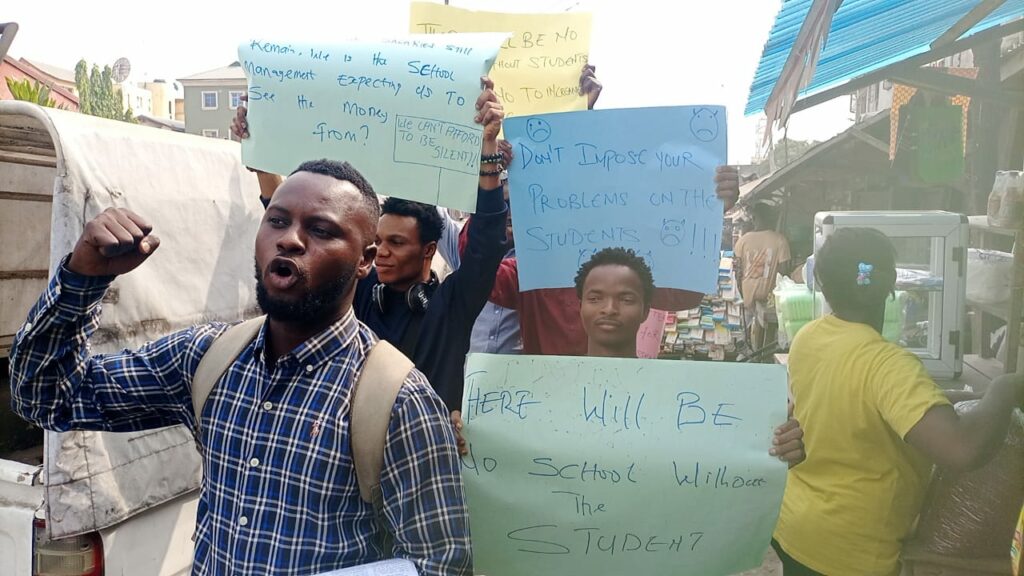 Remain. While is the School
Management Expecting us To
See the Money
from?
WE CAN'T AFFORD
TO BE
SILENT!!
BE NO
STUDENTS
TO INCREMENT
DON'T IMPOSE YOUR
PROBLEMS ON THE
STUDENTS !!!
THERE Will BE
No SCHOOL Without
The
STUDENT